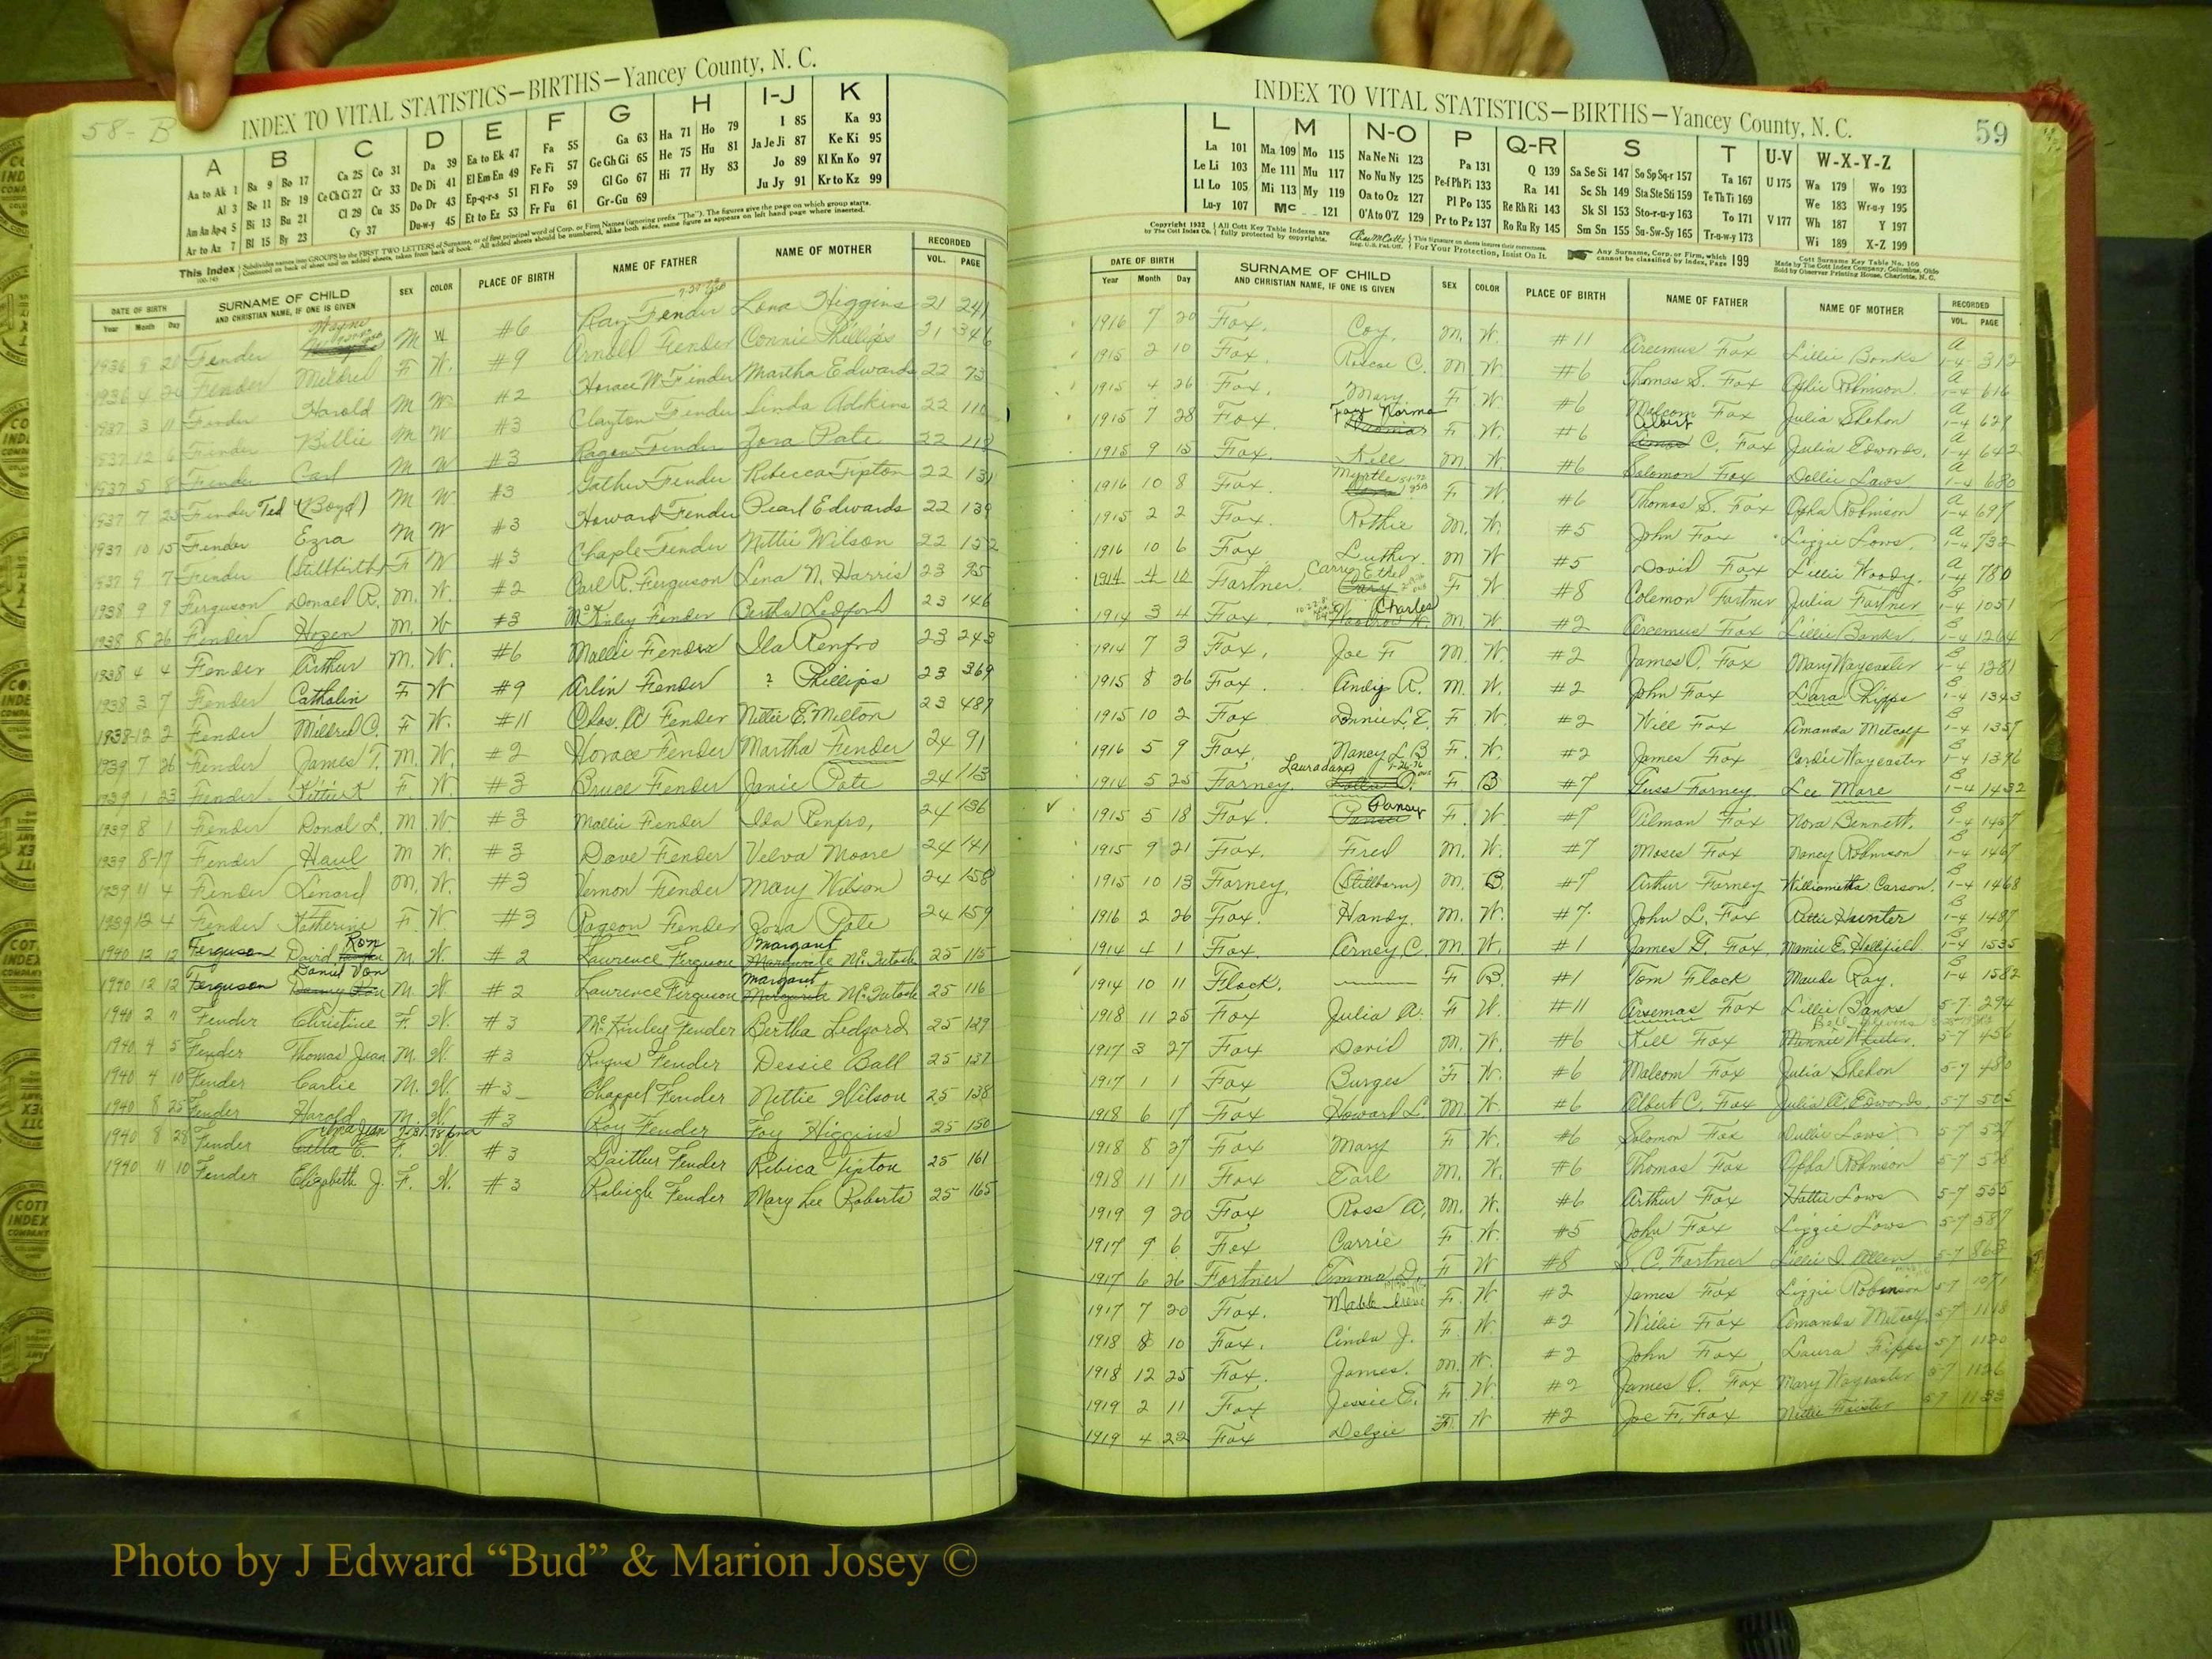 58-B
INDEX TO VITAL STATISTICS—BIRTHS—Yancey County, N. C.
A B C D E F G H I-J K
Aa to Ak 1 Ba 9 Bo 17 Ca 25 Co 31 Da 39 Ea to Ek 47 Fa 55 Ga 63 Ha 71 Ho 79 I 85 Ka 93
Al 3 Be 11 Br 19 Ce Ch Ci 27 Cr 33 De Di 41 El Em En 49 Fe Fi 57 Ge Gh Gi 65 He 75 Hu 81 Ja Je Ji 87 Ke Ki 95
Am An Ap-q 5 Bi 13 Bu 21 Cl 29 Cu 35 Do Dr 43 Ep-q-r-s 51 Fl Fo 59 Gl Go 67 Hi 77 Hy 83 Jo 89 Kl Kn Ko 97
Ar to Az 7 Bl 15 By 23 Cy 37 Du-w-y 45 Et to Ez 53 Fr Fu 61 Gr-Gu 69 Ju Jy 91 Kr to Kz 99
This Index Subdivides names into GROUPS by the FIRST TWO LETTERS of Surname, or of first principal word of Corp. or Firm Names (ignoring prefix "The"). The figures give the page on which group starts.
Continued on back of sheet and on added sheets, taken from back of book. All added sheets should be numbered, alike both sides, same figure as appears on left hand page where inserted.
DATE OF BIRTH SURNAME OF CHILD AND CHRISTIAN NAME, IF ONE IS GIVEN SEX COLOR PLACE OF BIRTH NAME OF FATHER NAME OF MOTHER RECORDED
Year Month Day VOL. PAGE
1936 9 Fender Wayne M W #6 Ray Fender Lona Higgins 21 241
1936 4 Fender Mildred F W. #9 Arnold Fender Connie Phillips 21 346
1937 3 11 Fender Harold M W #2 Horace W. Fender Martha Edwards 22 73
1937 12 6 Fender Billie M W #3 Clayton Fender Linda Adkins 22
1937 5 8 Fender Carl M W #3 Ragan Fender Zora Pate 22 118
1937 7 Fender Ted (Boyd) M W. #3 Gather Fender Rebecca Tipton 22 131
1937 10 15 Fender Ezra M W #3 Howard Fender Pearl Edwards 22 139
1937 9 7 Fender (Stillbirth) F W #3 Chaple Fender Nettie Wilson 22 152
1938 9 9 Ferguson Donald R. M. W. #2 Carl R. Ferguson Lena N. Harris 23 95
1938 8 26 Fender Hozen M. W #3 McKinley Fender Bertha Ledford 23 146
1938 4 4 Fender Arthur M. W. #6 Mallie Fender Ila Renfro 23 243
1938 3 7 Fender Cathalin F W #9 Arlin Fender ? Phillips 23 369
1938 12 2 Fender Mildred O. F W. #11 Chas. A Fender Nettie E. Melton 23 487
1939 7 26 Fender James T. M. W. #2 Horace Fender Martha Fender 24 91
1939 1 23 Fender Kittie K F. W. #3 Bruce Fender Janie Pate 24 113
1939 8 1 Fender Donal L. M. W. #3 Mallie Fender Ida Renfro, 24 136
1939 8-17 Fender Haul M W. #3 Dave Fender Velva Moore 24 141
1939 11 4 Fender Lenard M. W. #3 Vernon Fender Mary Wilson 24 158
1939 12 4 Fender Katherine F. W. #3 Rageon Fender Zora Pate 24 159
1940 12 12 Ferguson David Ron M. W. #2 Lawrence Ferguson Margaret McIntosh 25 115
1940 12 12 Ferguson Daniel Von M. W #2 Laurence Ferguson Margaret McIntosh 25 116
1940 2 Fender Christine F. W. #3 McKinley Fender Bertha Ledford 25 129
1940 4 5 Fender Thomas Jean M. W. #3 Rufus Fender Dessie Ball 25 137
1940 4 10 Fender Carlie M. W. #3 Chappel Fender Nettie Wilson 25 138
1940 8 25 Fender Harold M. W. #3 Roy Fender Foy Higgins 25 150
1940 8 28 Fender F. W. #3 Gaither Fender Rebica Tipton 25 161
1940 11 10 Fender Elizabeth J. F. W. #3 Raleigh Fender Mary Lee Roberts 25 165
INDEX TO VITAL STATISTICS—BIRTHS—Yancey County, N. C. 59
L M N-O P Q-R S T U-V W-X-Y-Z
La 101 Ma 109 Mo 115 Na Ne Ni 123 Pa 131 Q 139 Sa Se Si 147 So Sp Sq-r 157 Ta 167 U 175 Wa 179 Wo 193
Le Li 103 Me 111 Mu 117 No Nu Ny 125 Pe-f Ph Pi 133 Ra 141 Sc Sh 149 Sta Ste Sti 159 Te Th Ti 169 We 183 Wr-u-y 195
Ll Lo 105 Mi 113 My 119 Oa to Oz 127 Pl Po 135 Re Rh Ri 143 Sk Sl 153 Sto-r-u-y 163 To 171 V 177 Wh 187 Y 197
Lu-y 107 Mc 121 O'A to O'Z 129 Pr to Pz 137 Ro Ru Ry 145 Sm Sn 155 Su-Sw-Sy 165 Tr-u-w-y 173 Wi 189 X-Z 199
Copyright 1932 by The Cott Index Co. All Cott Key Table Indexes are fully protected by copyrights. Reg. U.S. Pat. Off. This Signature on sheets insures their correctness. For Your Protection, Insist On It. Any Surname, Corp. or Firm, which cannot be classified by Index, Page 199 Cott Surname Key Table No. 100
Made by The Cott Index Company, Columbus, Ohio
Sold by Observer Printing House, Charlotte, N. C.
DATE OF BIRTH SURNAME OF CHILD AND CHRISTIAN NAME, IF ONE IS GIVEN SEX COLOR PLACE OF BIRTH NAME OF FATHER NAME OF MOTHER RECORDED
Year Month Day VOL. PAGE
1916 7 20 Fox, Coy, M. W. #11 Arcemus Fox Lillie Banks A 1-4 312
1915 2 10 Fox, Roscoe C. M W. #6 Thomas S. Fox Robinson A 1-4 616
1915 4 26 Fox, Mary. F. W. #6 Malcom Fox Julia Shehon A 1-4 629
1915 7 28 Fox Norma F. W. #6 Albert C. Fox Julia Edwards. A 1-4 642
1915 9 15 Fox. M. W. #6 Solomon Fox Dollie Laws A 1-4 680
1916 10 8 Fox. Myrtle F W #6 Thomas S. Fox Opha Robinson A 1-4 697
1915 2 2 Fox. Rothie M. W. #5 John Fox Lizzie Lows. A 1-4 732
1916 10 6 Fox Luther. M W #5 David Fox Lillie Woody. A 1-4 780
1914 Fortner Carrie Ethel F W #8 Colemon Fortner Julia Fortner B 1-4 1051
1914 3 4 Fox Charles M. W. #2 Arcemus Fox Lillie Banks B 1-4 1264
1914 7 3 Fox, Joe F M. W. #2 James O. Fox Mary Waycaster B 1-4 1281
1915 8 26 Fox. Andy R. M. W. #2 John Fox Lara Phipps B 1-4 1343
1915 10 2 Fox Annie L. E. F. W. #2 Will Fox Amanda Metcalf B 1-4 1357
1916 5 9 Fox, Nancy L B F. W. #2 James Fox Cordie Waycaster B 1-4 1396
1914 5 25 Forney. F B #7 Guss Forney Lee More B 1-4 1432
1915 5 18 Fox. Pansy F. W. #7 Tilman Fox Nora Bennett. B 1-4 1457
1915 9 21 Fox. Fred M. W. #7 Moses Fox Nancy Robinson B 1-4 1467
1915 10 13 Forney, (Stillborn) M. B. #7 Arthur Forney Williametta Carson. B 1-4 1468
1916 2 26 Fox. Handy. M. W. #7 John L. Fox Hunter B 1-4 1487
1914 4 1 Fox, Arney C. M. W. #1 James G. Fox Mamie E. Hollifield B 1-4 1535
1914 10 11 Flack. F B. #1 Tom Flack Maude Ray. B 1-4 1582
1918 11 25 Fox Julia A. F W. #11 Arsemas Fox Lillie Banks 5-7 294
1917 3 27 Fox David M. W. #6 Fox 5-7 456
1917 1 1 Fox Burges F W. #6 Malcom Fox Julia Shehon 5-7 480
1918 6 17 Fox Howard L. M W. #6 Albert C. Fox Julia A. Edwards. 5-7 505
1918 8 27 Fox Mary F W. #6 Solomon Fox Dullie Laws 5-7 527
1918 11 11 Fox Earl M. W. #6 Thomas Fox Robinson 5-7 528
1919 9 20 Fox Ross A, M. W. #6 Arthur Fox Hattie Lows 5-7 555
1917 9 6 Fox Carrie F W. #5 John Fox Lizzie Lows 5-7 587
1917 6 26 Fortner Emma D. F W #8 S. C. Fortner Lillie D. Allen 5-7 863
1917 7 20 Fox. F. W #2 James Fox Lizzie Robinson 5-7 1071
1918 8 10 Fox. Cinda J. F. W. #2 Willie Fox Amanda Metcalf 5-7 1118
1918 12 25 Fox. James. M. W. #2 John Fox Laura Fipps 5-7 1120
1919 2 11 Fox Jessie E. F. W. #2 James O. Fox Mary Waycaster 5-7 1126
1919 4 22 Fox Delzie F. W #2 Joe F. Fox Nettie 5-7 1133
Photo by J Edward “Bud” & Marion Josey ©